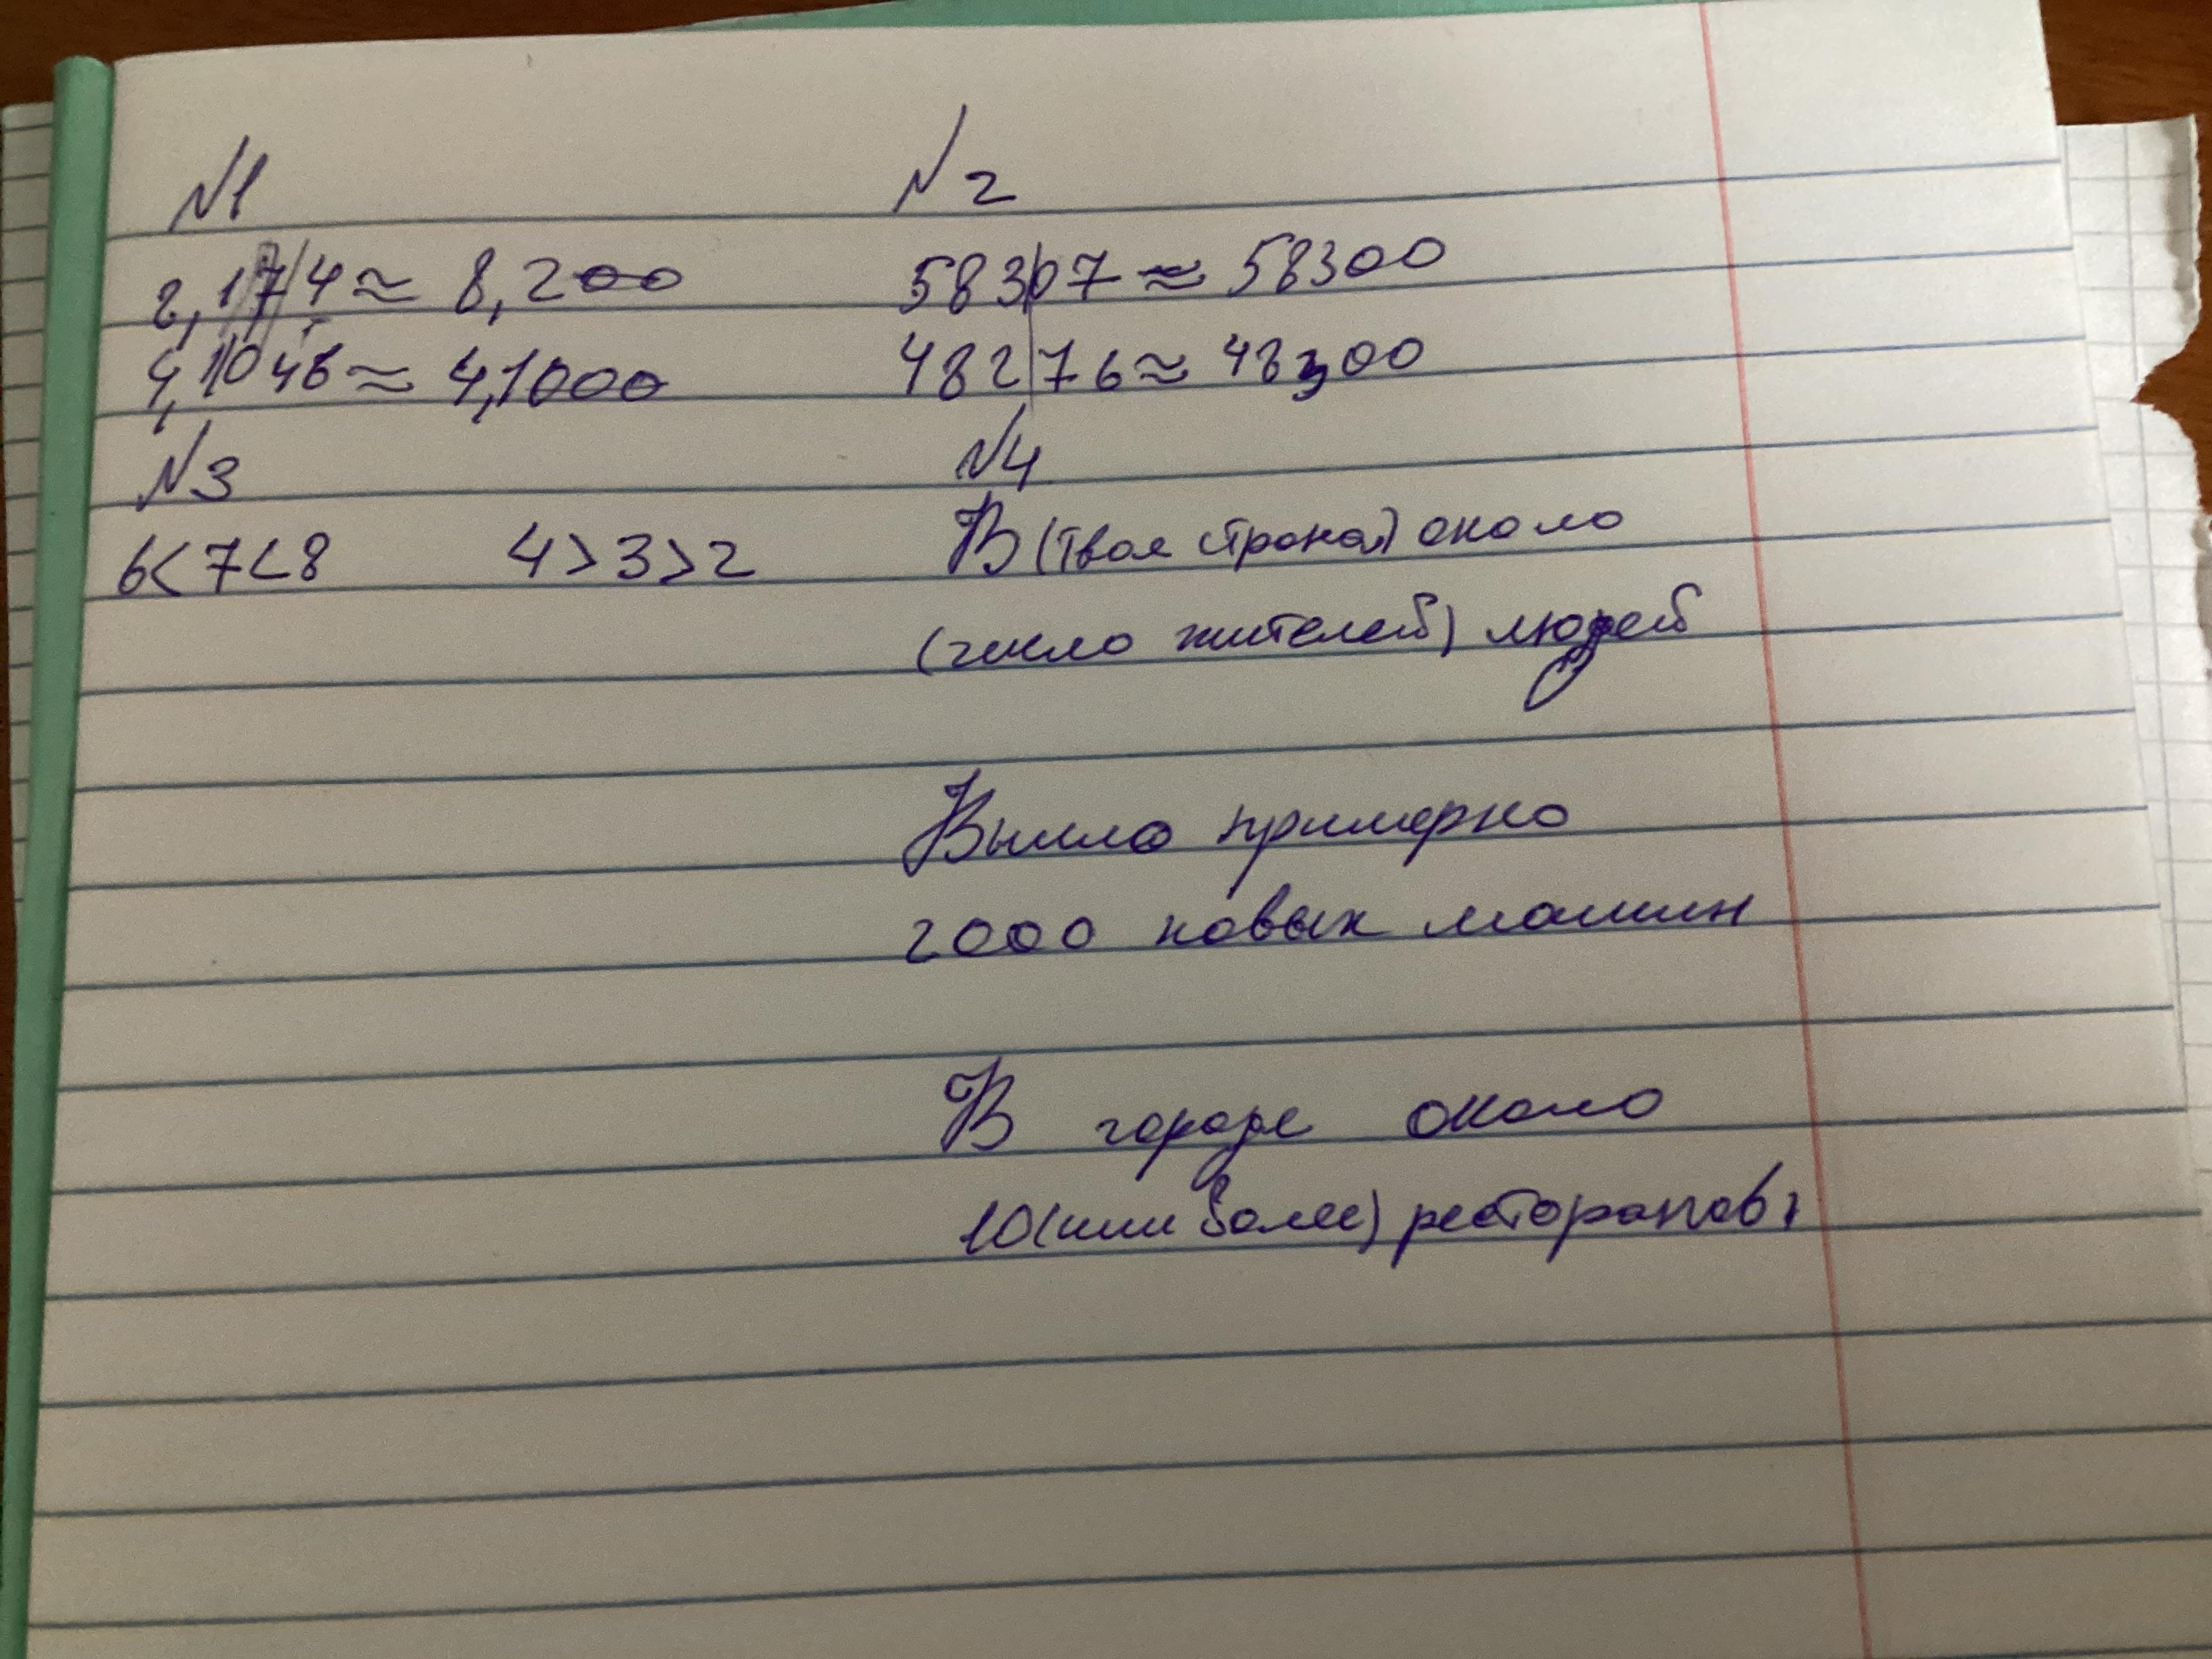 №1
8,174 ≈ 8,200
4,1046 ≈ 4,1000
№2
58307 ≈ 58300
48276 ≈ 48300
№3
6<7<8 4>3>2
№4
В (твоя страна) около
(число жителей) людей
Вышло примерно
2000 новых машин
В городе около
10(или более) ресторанов.